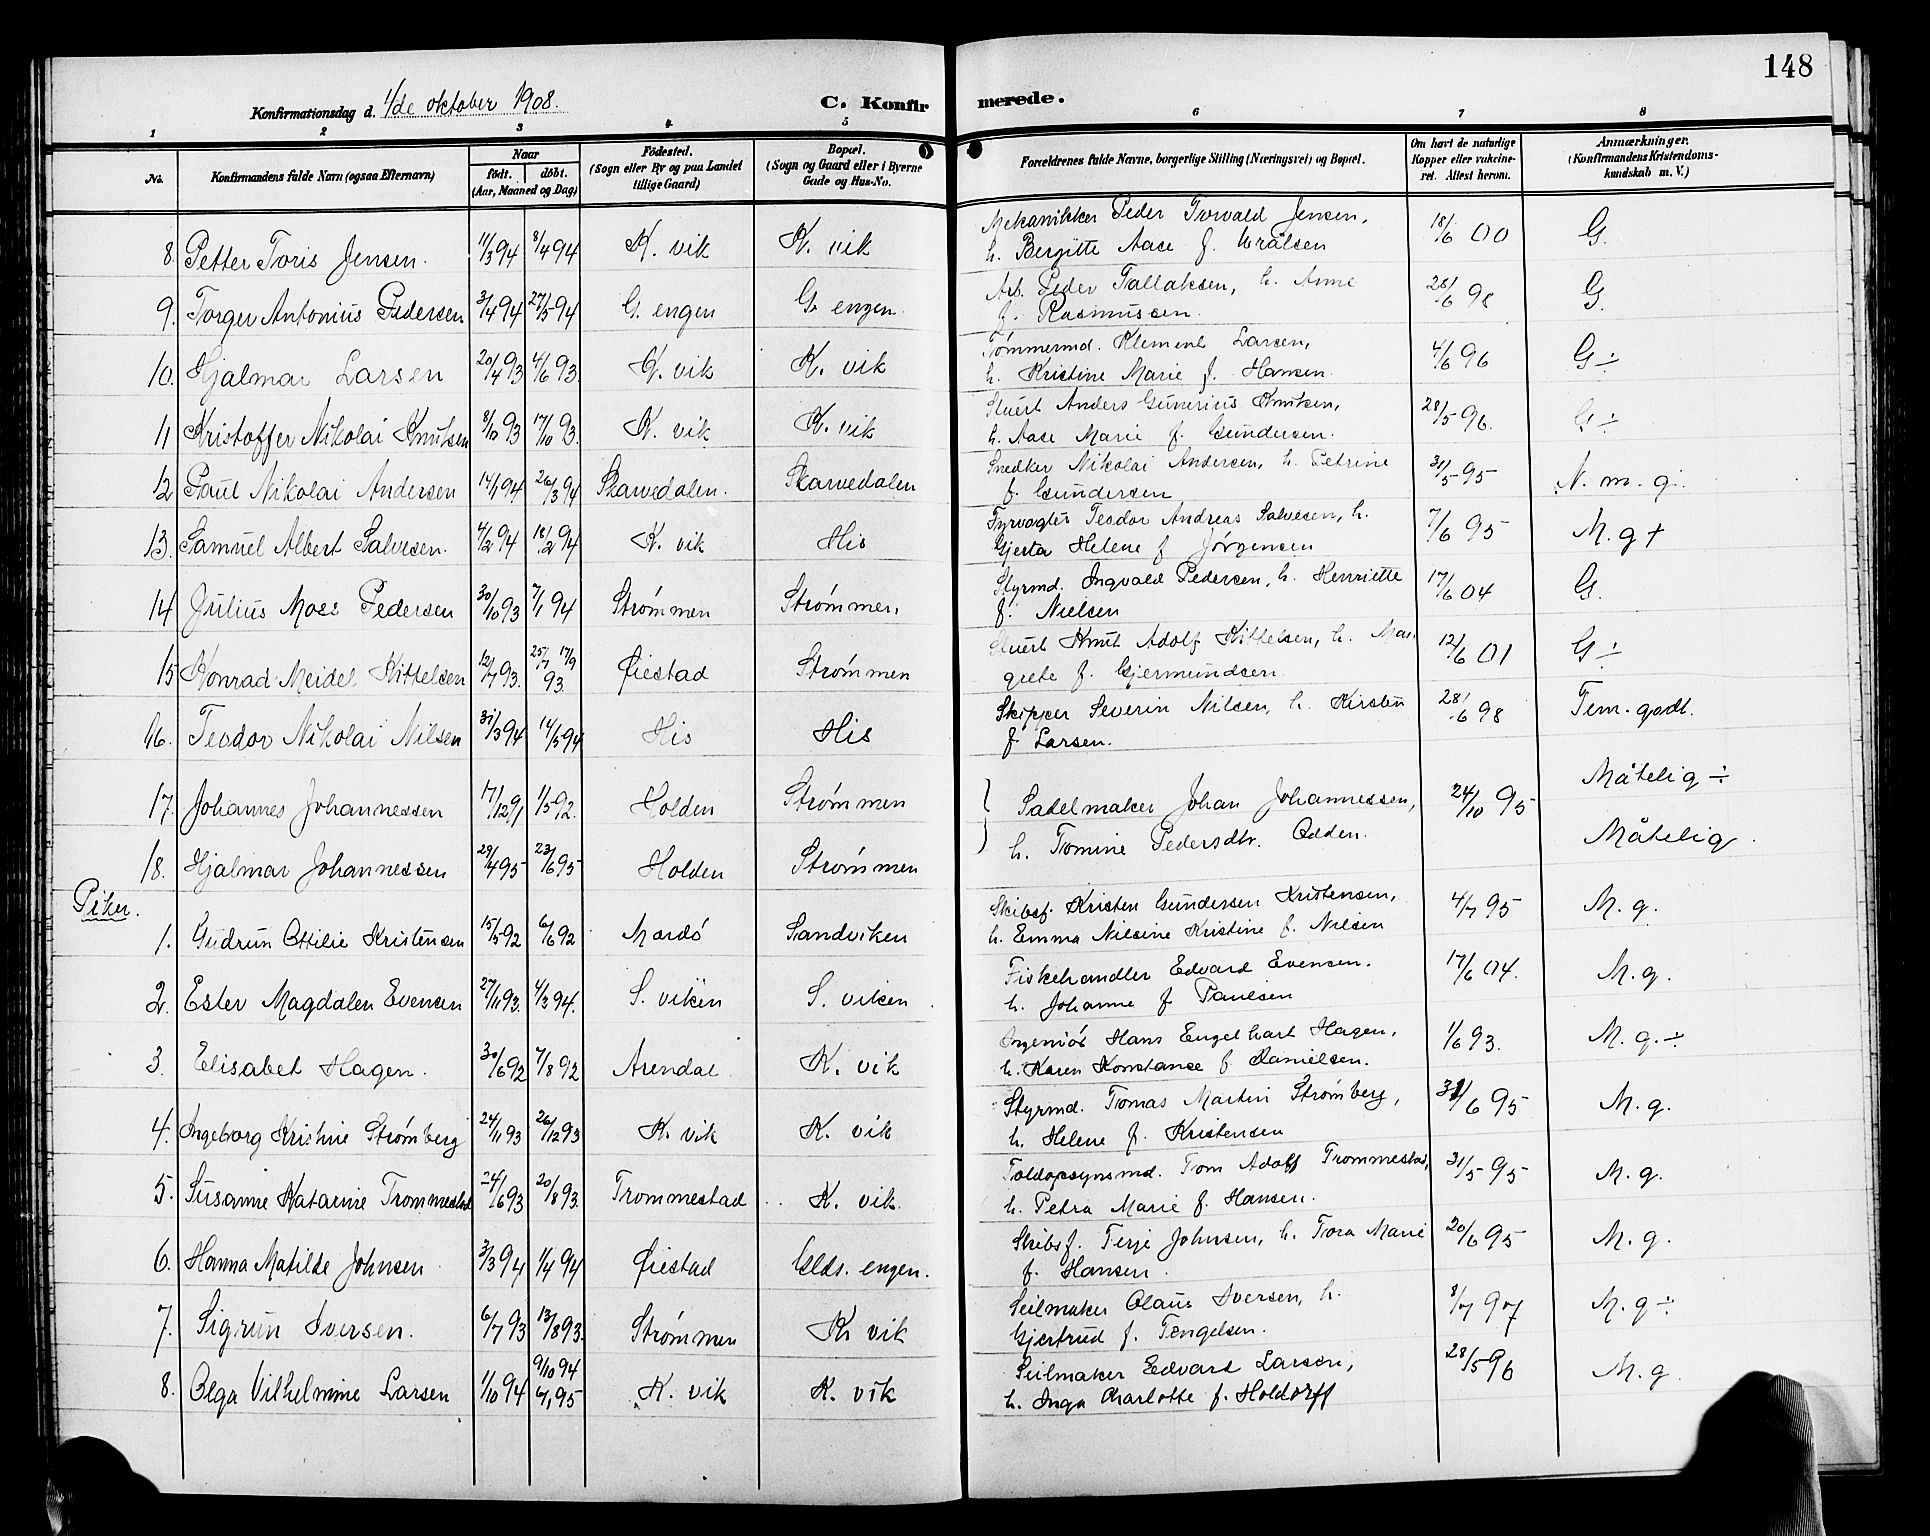 148
Konfirmationsdag d. 4/de oktober 1908.
C. Konfirmerede.
1 2 3 4 5 6 7 8
No.
Konfirmandens fulde Navn (ogsaa Efternavn)
Naar
født. døbt.
(Aar, Maaned og Dag)
Fødested.
(Sogn eller By og paa Landet
tillige Gaard)
Bopæl.
(Sogn og Gaard eller i Byerne
Gade og Hus-No.
Forældrenes fulde Navne, borgerlige Stilling (Næringsvei) og Bopæl.
Om havt de naturlige
Kopper eller vakcine-
ret. Attest herom.
Anmærkninger.
(Konfirmandens Kristendoms-
kundskab m. V.)
8. Petter Toris Jensen. 11/3 94 8/4 94 K. vik K. vik Mekanikker Peder Torvald Jensen, 18/6 00 G.
h. Bergitte Aase f. Wrålsen
9. Torger Antonius Pedersen 3/4 94 27/5 94 G. engen G. engen. Arb. Peder Tallaksen, h. Anne 28/6 98 G.
f. Rasmussen.
10. Hjalmar Larsen 20/4 93 4/6 93. K. vik K. vik Tømmermd. Klement Larsen, 4/6 96 G ÷
h. Kristine Marie f. Hansen.
11 Kristoffer Nikolai Knutsen 8/10 93 17/10 93. K. vik K. vik Stuert Anders Gunerius Knutsen, 28/5 96. G ÷
h. Aase Marie f. Gundersen.
12 Paul Nikolai Andersen 14/1 94 26/3 94 Skarvedalen. Skarvedalen Snedker Nikolai Andersen, h. Petrine 31/5 95 N. m. g.
f. Gundersen
13. Samuel Albert Salvesen. 4/2 94 18/2 94 K. vik His Fyrvogter Teodor Andreas Salvesen, h. 7/6 95 M. g +
Gjerta Helene f Jørgensen
14 Julius Mose Pedersen 30/10 93 7/1 94 Strømmen Strømmen, Styrmd. Ingvald Pedersen, h. Henriette 17/6 04 G.
f. Nielsen
15 Konrad Meidel Kittelsen 12/7 93. 25/7 17/9 93. Øiestad Strømmen Stuert Knut Adolf Kittelsen, h. Mar- 12/6 01 G ÷
grete f. Gjermundsen.
16. Teodor Nikolai Nilsen 31/3 94 14/5 94 His His Skipper Severin Nilsen, h. Kirsten 28/6 98 Tem. godt.
f. Larsen.
17. Johannes Johannessen 17/12 91 1/5 92. Holden Strømmen Sadelmaker Johan Johannessen, 24/10 95 Måtelig ÷
18. Hjalmar Johannessen 29/4 95 23/6 95 Holden Strømmen h. Tomine Pedersdtr. Odden. Måtelig.
Piker.
1. Gudrun Ottilie Kristensen 15/5 92 6/6 92 Mardø Sandviken Skibsf. Kristen Gundersen Kristensen, 4/7 95 M. g.
h. Emma Nilsine Kristine f. Nilsen
2. Ester Magdalen Evensen 27/11 93. 4/3 94. S. viken S. viken. Fiskehandler Edvard Evensen. 17/6 04. M. g.
h. Johanne f Paulsen
3. Elisabet Hagen. 30/6 92 7/8 92 Arendal. K. vik Ingeniør Hans Engelhart Hagen, 1/6 93. M. g. ÷
h. Karen Konstanse f Danielsen.
4. Ingeborg Kristine Strømberg 24/11 93 26/12 93 K. vik K. vik Styrmd. Tomas Martin Strømberg, 31/6 95 M. g.
h. Helene f. Kristensen
5. Susanne Katarine Trommestad 24/6 93 20/8 93. Trommestad K. vik. Toldopsynsmd. Tom Adolf Trommestad, 31/5 95 M. g.
h. Petra Marie f. Hansen.
6. Hanna Matilde Johnsen 3/3 94 1/4 94 Øiestad Glds. engen. Skibsf. Terje Johnsen, h. Tora Marie 20/6 95 M. g.
f. Hansen.
7. Sigrun Iversen. 6/7 93 13/8 93. Strømmen K. vik Seilmaker Olaus Iversen, h. 8/7 97 M. g ÷
Gjertrud f. Tengelsen.
8. Olga Vilhelmine Larsen 1/10 94 9/10 94 6/1 95 K. vik K. vik Seilmaker Edvard Larsen, 28/5 96 M. g.
h. Inga Charlotte f. Holdorff